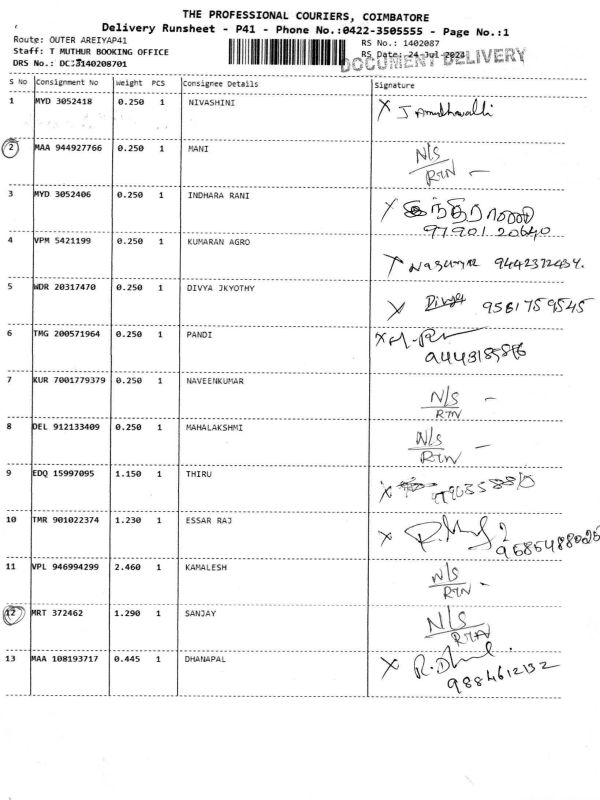 THE PROFESSIONAL COURIERS, COIMBATORE
Delivery Runsheet - P41 - Phone No.:0422-3505555 - Page No.:1
Route: OUTER AREIYAP41
RS No.: 1402087
Staff: T MUTHUR BOOKING OFFICE
RS Date: 24-Jul-2024
DOCUMENT DELIVERY
DRS No.:
S No Consignment No Weight PCS Consignee Details Signature
1 MYD 3052418 0.250 1 NIVASHINI X
2 MAA 944927766 0.250 1 MANI N/S
RTN —
3 MYD 3052406 0.250 1 INDHARA RANI X இந்திராணி
97901 20640
4 VPM 5421199 0.250 1 KUMARAN AGRO X
5 WDR 20317470 0.250 1 DIVYA JKYOTHY X Divya 9561759545
6 TMG 200571964 0.250 1 PANDI X
7 KUR 7001779379 0.250 1 NAVEENKUMAR N/S —
RTN
8 DEL 912133409 0.250 1 MAHALAKSHMI N/S —
RTN
9 EDQ 15997095 1.150 1 THIRU X
10 TMR 901022374 1.230 1 ESSAR RAJ X
11 VPL 946994299 2.460 1 KAMALESH N/S —
RTN
12 MRT 372462 1.290 1 SANJAY N/S
RTN
13 MAA 108193717 0.445 1 DHANAPAL X
9884612132